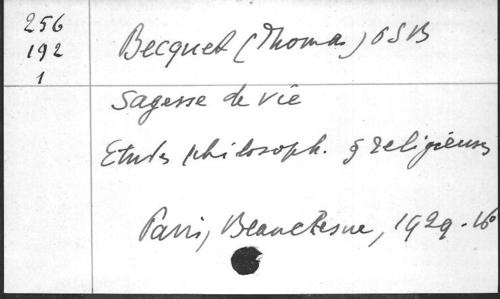 256
192
1
Becquet (Thomas) OSB
Sagesse de vie
Etudes philosoph. & religieuses
Paris, Beauchesne, 1929. 16°